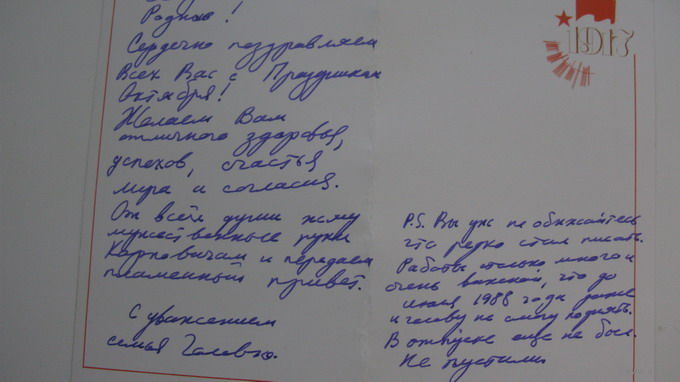 Родные!
Сердечно поздравляем
Всех Вас с Праздником
Октября!
Желаем Вам
отличного здоровья,
успехов, счастья
мира и согласия.
От всей души жму
мужественные руки
Карповичам и передаем
пламенный привет.
С уважением
семья Головко.
1917
P.S. Вы уж не обижайтесь
что редко стал писать.
Работы столько много и
очень важной, что до
июля 1988 года даже
и голову не смогу поднять.
В отпуске еще не был.
Не пустили